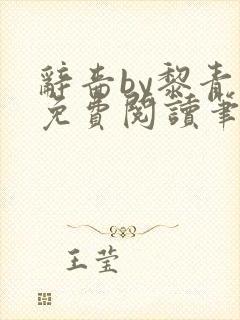 辭嗇by黎青
免費閱讀筆
王莹